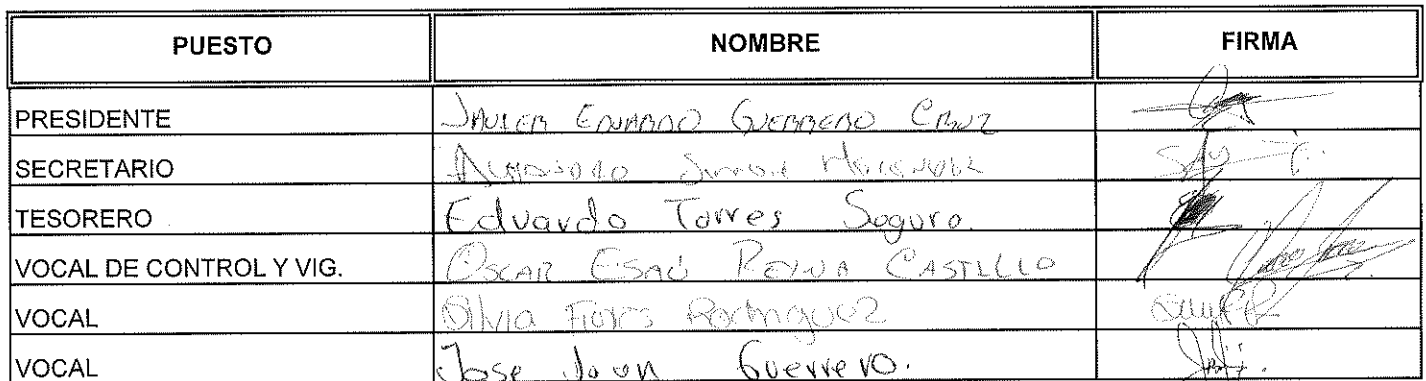 PUESTO NOMBRE FIRMA
PRESIDENTE JAVIER EDUARDO GUERRERO CRUZ
SECRETARIO
TESORERO Eduardo Torres Seguro.
VOCAL DE CONTROL Y VIG. OSCAR ESAÚ REYNA CASTILLO
VOCAL Silvia Flores Rodriguez
VOCAL Jose Juan Guerrero.